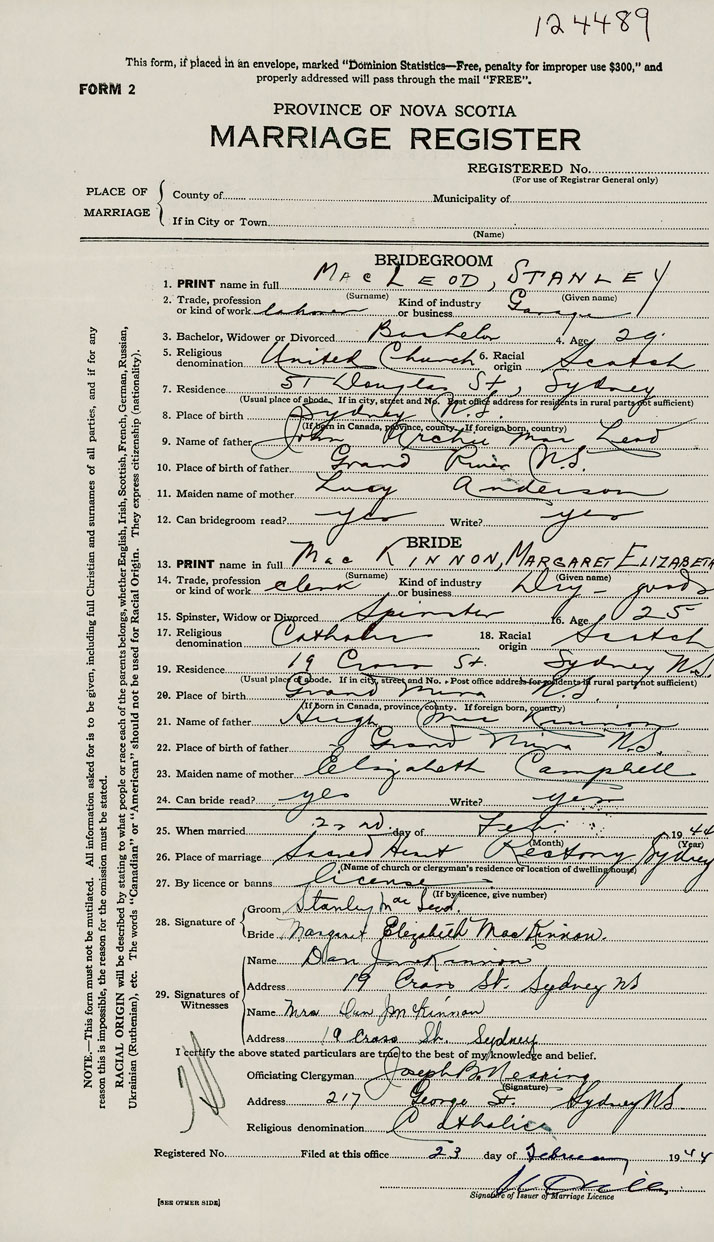 124489
This form, if placed in an envelope, marked "Dominion Statistics—Free, penalty for improper use $300," and
properly addressed will pass through the mail "FREE".
FORM 2
PROVINCE OF NOVA SCOTIA
MARRIAGE REGISTER
REGISTERED No.
(For use of Registrar General only)
PLACE OF MARRIAGE
County of Municipality of
If in City or Town
(Name)
BRIDEGROOM
1. PRINT name in full MacLEOD, STANLEY
(Surname) (Given name)
2. Trade, profession or kind of work laborer Kind of industry or business Garage
3. Bachelor, Widower or Divorced Bachelor 4. Age 29
5. Religious denomination United Church 6. Racial origin Scotch
7. Residence 51 Douglas St., Sydney
(Usual place of abode. If in city, street and No. Post office address for residents in rural parts not sufficient)
8. Place of birth Sydney N.S.
(If born in Canada, province, county. If foreign born, country)
9. Name of father John Archie Mac Leod
10. Place of birth of father Grand River N.S.
11. Maiden name of mother Lucy Anderson
12. Can bridegroom read? yes Write? yes
BRIDE
13. PRINT name in full MacKINNON, MARGARET ELIZABETH
(Surname) (Given name)
14. Trade, profession or kind of work clerk Kind of industry or business Dry-goods
15. Spinster, Widow or Divorced Spinster 16. Age 25
17. Religious denomination Catholic 18. Racial origin Scotch
19. Residence 19 Cross St. Sydney N.S.
(Usual place of abode. If in city, street and No. Post office address for residents in rural party not sufficient)
20. Place of birth Grand Mira N.S.
(If born in Canada, province, county. If foreign born, country)
21. Name of father Hugh Mac Kinnon
22. Place of birth of father Grand Mira N.S.
23. Maiden name of mother Elizabeth Campbell
24. Can bride read? yes Write? yes
25. When married 22nd day of Feb. 1944
(Month) (Year)
26. Place of marriage Sacred Heart Rectory Sydney
(Name of church or clergyman's residence or location of dwelling house)
27. By licence or banns license
(If by licence, give number)
28. Signature of
Groom Stanley MacLeod.
Bride Margaret Elizabeth MacKinnon.
29. Signatures of Witnesses
Name Dan J McKinnon
Address 19 Cross St. Sydney NS
Name Mrs Dan J McKinnon
Address 19 Cross St. Sydney
I certify the above stated particulars are true to the best of my knowledge and belief.
Officiating Clergyman Joseph B.
(Signature)
Address 217 George St. Sydney N.S.
Religious denomination Catholic
Registered No. Filed at this office 23 day of February 1944
Signature of Issuer of Marriage Licence
[SEE OTHER SIDE]
NOTE.—This form must not be mutilated. All information asked for is to be given, including full Christian and surnames of all parties, and if for any
reason this is impossible, the reason for the omission must be stated.
RACIAL ORIGIN will be described by stating to what people or race each of the parents belongs, whether English, Irish, Scottish, French, German, Russian,
Ukrainian (Ruthenian), etc. The words "Canadian" or "American" should not be used for Racial Origin. They express citizenship (nationality).